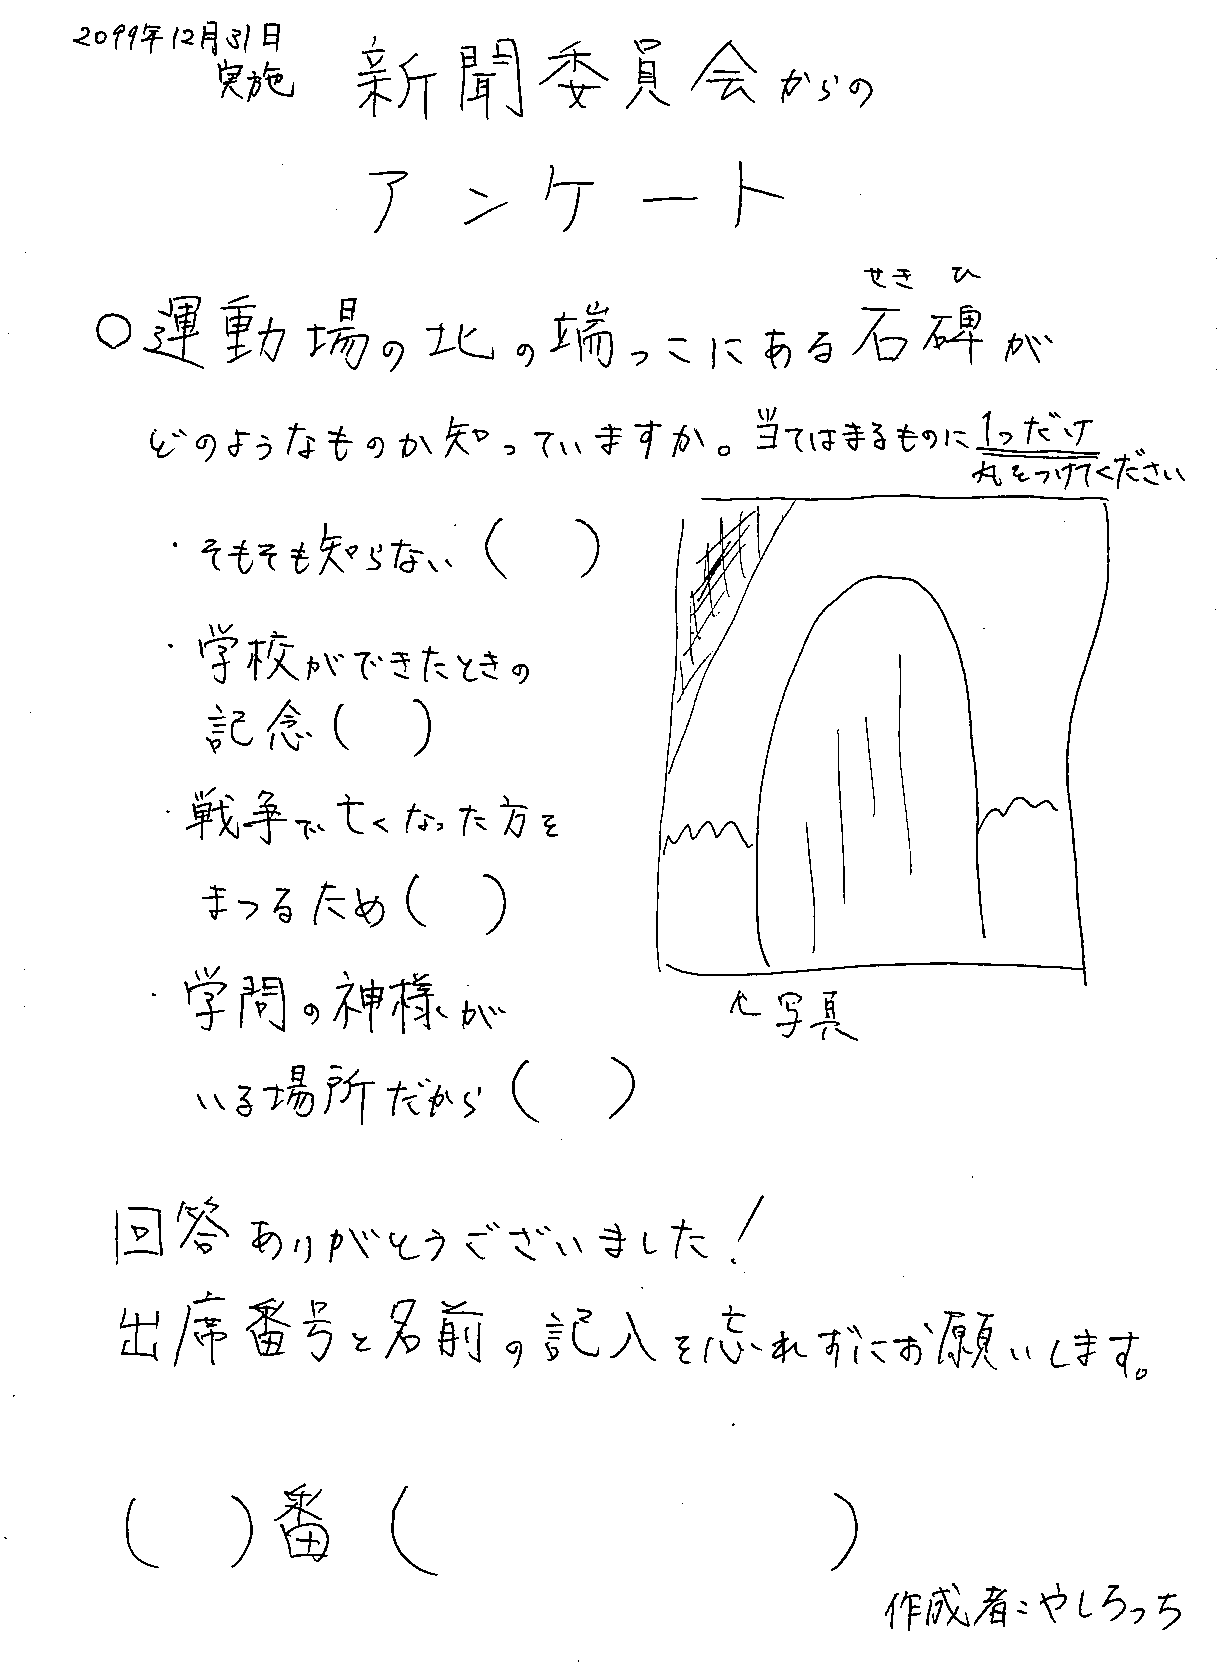 2099年12月31日
実施
新聞委員会からの
アンケート
せきひ
○運動場の北の端っこにある石碑が
どのようなものか知っていますか。当てはまるものに1つだけ
丸をつけてください
・そもそも知らない( )
・学校ができたときの
記念( )
・戦争で亡くなった方を
まつるため( )
・学問の神様が
いる場所だから( )
↖写真
回答ありがとうございました!
出席番号と名前の記入を忘れずにお願いします。
( )番( )
作成者:やしろっち